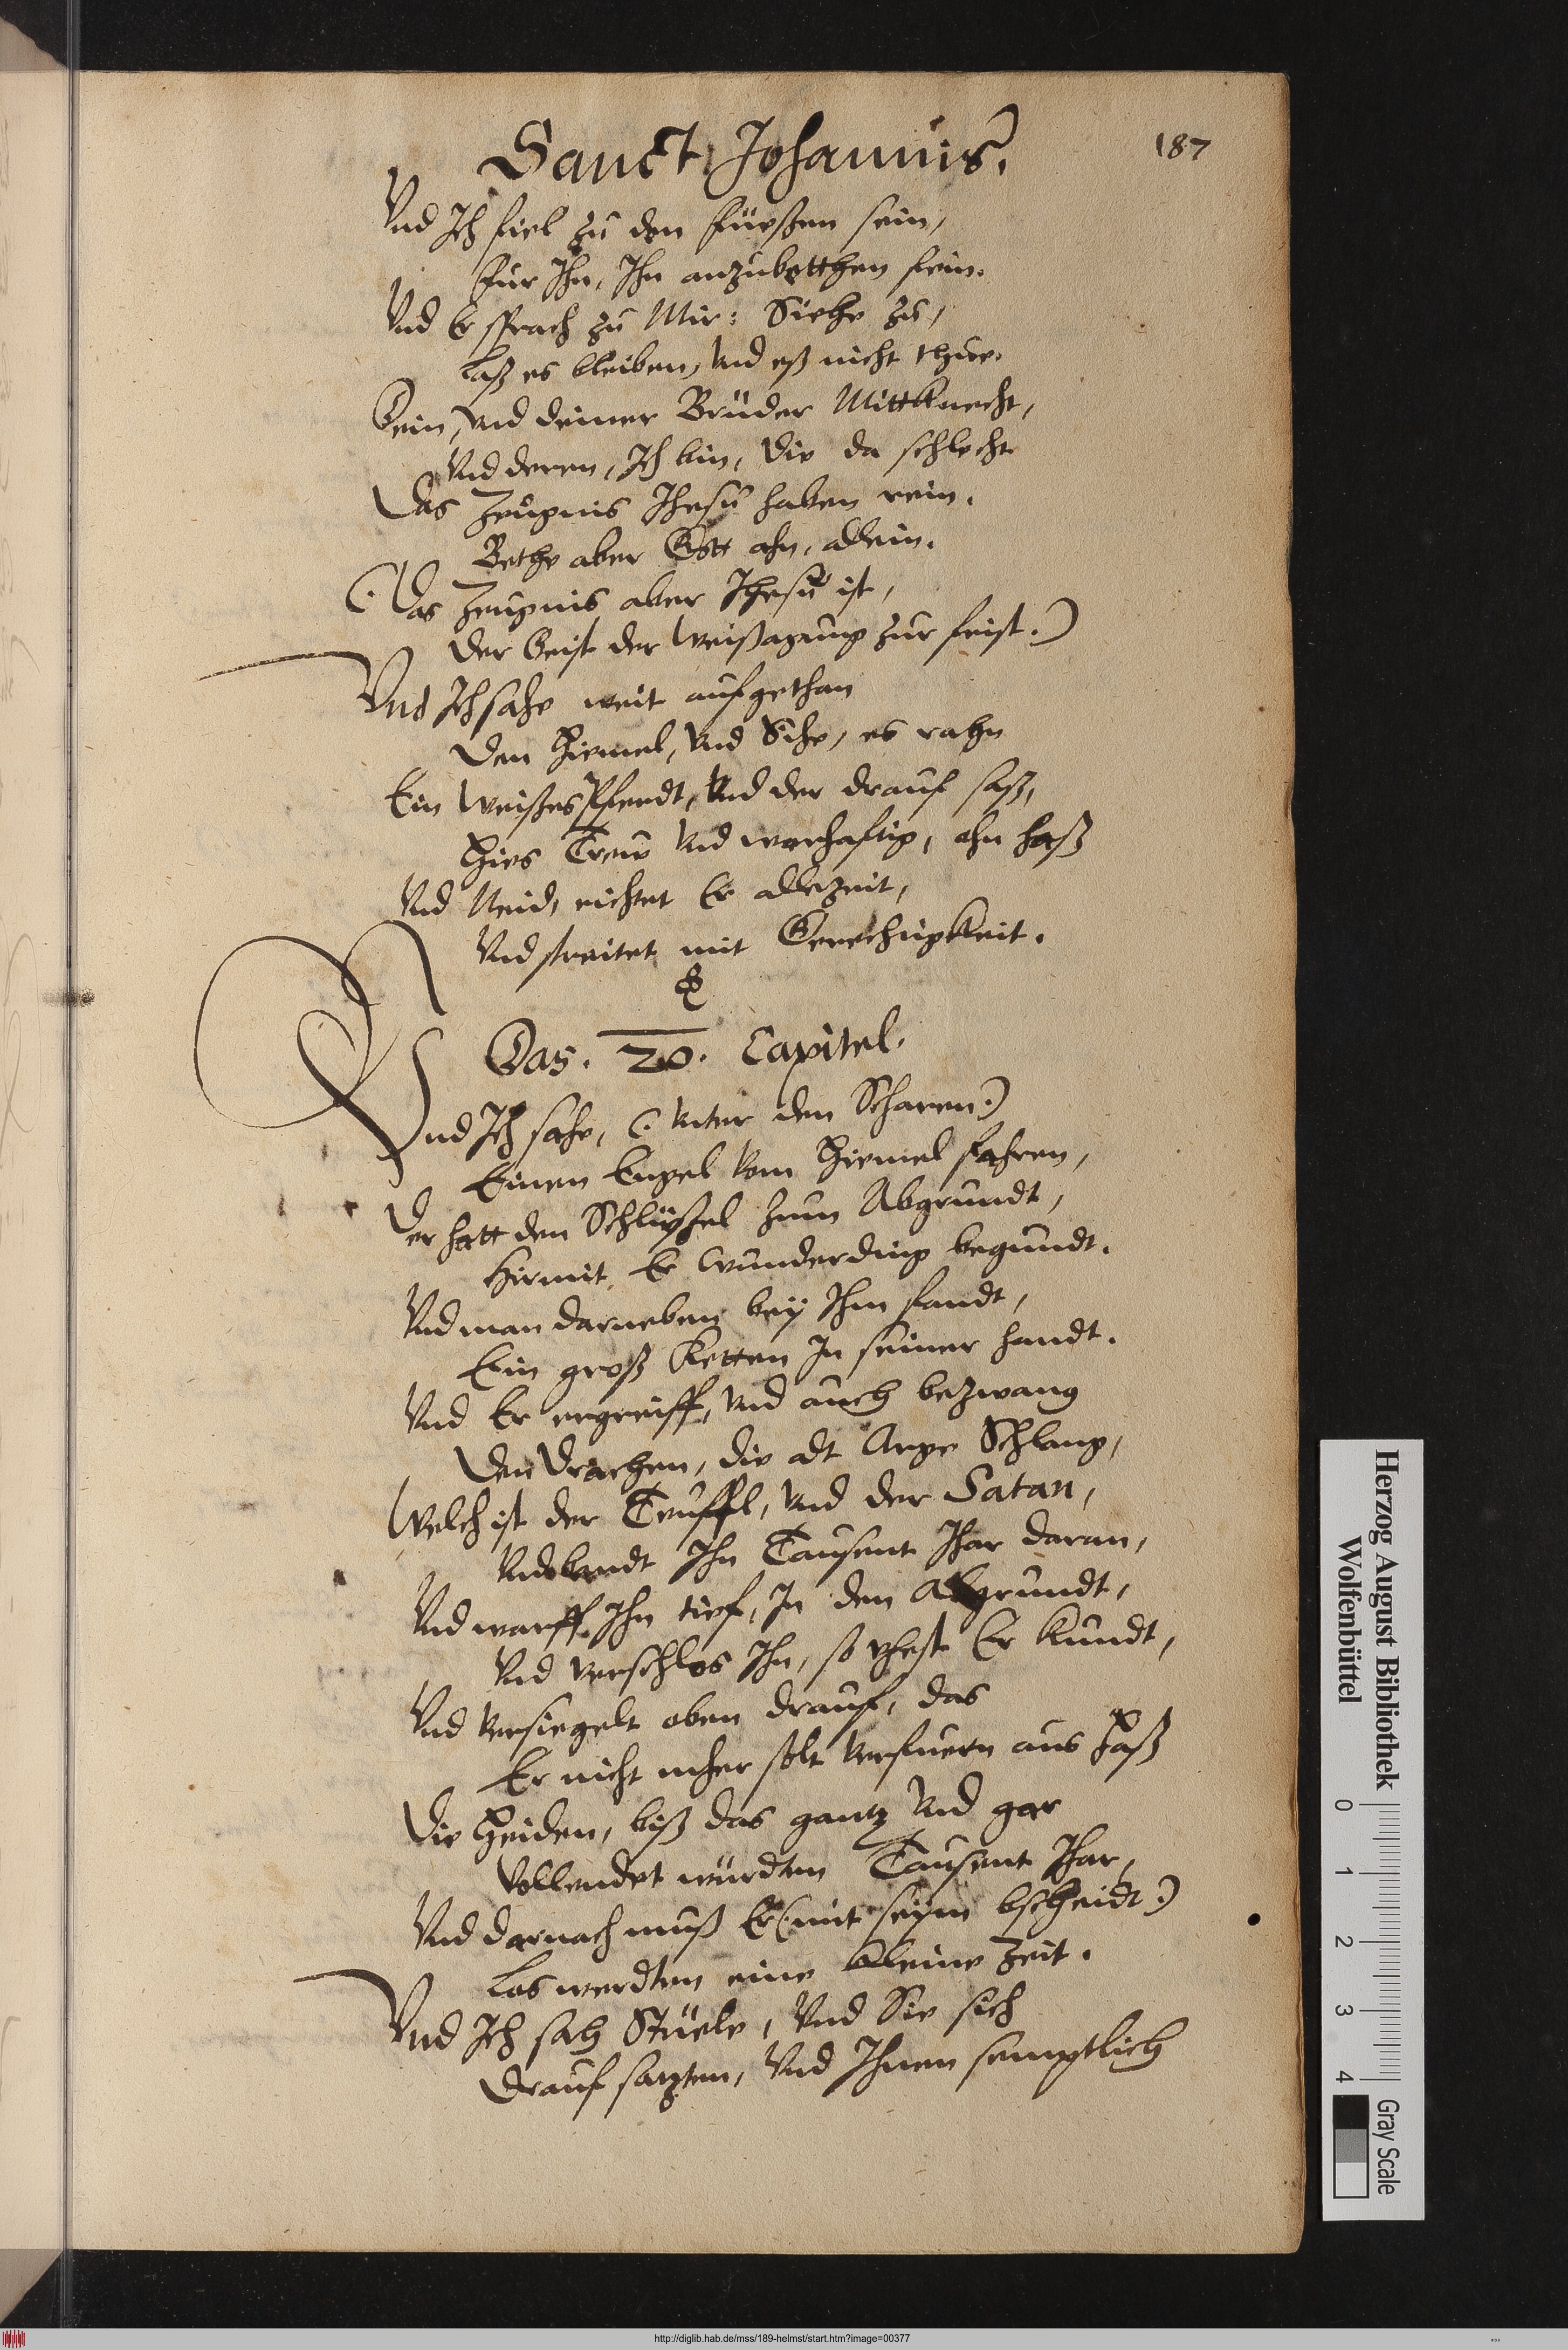 Sanct Johannis.
187
Vnd Ich fiel zu den füeßen sein,
Für Ihn, Ihn anzubetthen fein.
Vnd Er sprach zu Mir: Siehe zu,
Laß es bleiben, vnd eß nicht thue.
Dein, vnd deiner Brüder Mittknecht,
Vnd deren, Ich bin, die da schlecht
Das Zeugnis Jhesu haben rein.
Bethe aber Gott ahn, allein.
(. Das Zeugnis aber Jhesu ist,
Der Geist der Weißagung zur frist.)
Vnd Ich sahe weit aufgethan
Den Hiemel, vnd Sihe, es rahn
Ein Weißes Pferdt, Vnd der drauf saß,
Hies Trew vnd warhaftig, ohn haß
Vnd Neid, richtet Er allezeit,
Vnd streitet mit Gerechtigkeit.
Das. 20. Capitel.
Vnd Ich sahe, (. vnter den Scharen.)
Einen Engel vom Hiemel fahren,
Der hatt den Schlüßel zum Abgrundt,
Hirmit Er Wunderding begundt.
Vnd man darneben bey Ihm fandt,
Ein groß Ketten In seiner handt.
Vnd Er ergreiff, vnd auch bezwang
Den Drachen, die alt Arge Schlang,
Welch ist der Teuffl, vnd der Satan,
Vnd bandt Ihn Tausent Jhar daran,
Vnd warff Ihn tief, In den Abgrundt,
Vnd verschlos Ihn, so vhest Er kundt,
Vnd versiegelt oben drauf, das
Er nicht mher solt verfuern aus Haß
Die Heiden, biß das gantz vnd gar
Vollendet würdten Tausent Jhar,
Vnd darnach muß Er (. mit seym bscheidt.)
Los werdten eine kleine Zeit.
Vnd Ich sah Stüele, Vnd Sie sich
Drauf satzten, Vnd Ihnen semptlich
Herzog August Bibliothek
Wolfenbüttel
0 1 2 3 4
Gray Scale
http://diglib.hab.de/mss/189-helmst/start.htm?image=00377